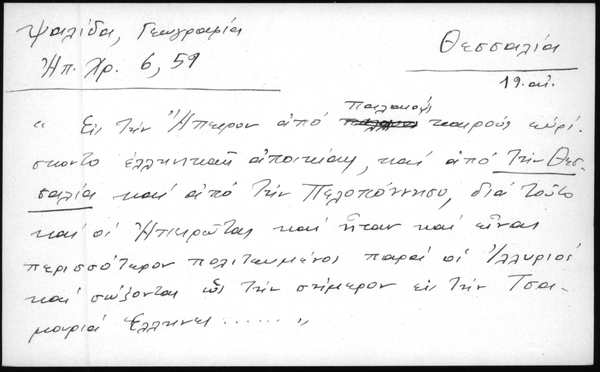 Ψαλίδα, Γεωγραφία
Ἠπ. Χρ. 6, 59
Θεσσαλία
19. αἰ.
παλαιούς
" Εἰς τήν Ἤπειρον ἀπό καιρούς εὑρί-
σκοντο ἑλληνικαί ἀποικίαι, καί ἀπό τήν Θεσ-
σαλία καί ἀπό τήν Πελοπόννησο, διά τοῦτο
καί οἱ Ἠπειρῶται καί ἦταν καί εἶναι
περισσότερον πολιτευμένοι παρά οἱ Ἰλλυριοί
καί σώζονται ὥς τήν σήμερον εἰς τήν Τσα-
μουριά Ἕλληνες ...... "